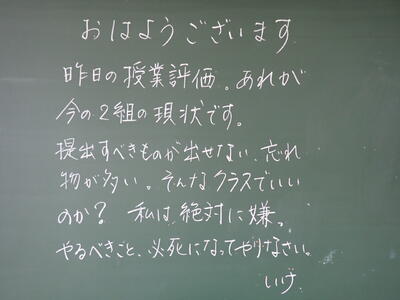 おはようございます
昨日の授業評価。あれが
今の2組の現状です。
提出すべきものが出せない、忘れ
物が多い。そんなクラスでいい
のか？ 私は絶対に嫌。
やるべきこと、必死になってやりなさい。
いけ